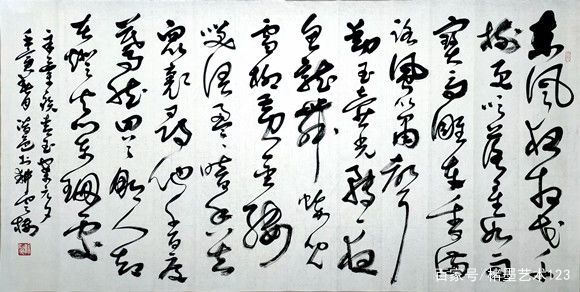 东风夜放花千
树更吹落星如雨
寶马雕车香满
路凤箫声
动玉壶光转一夜
鱼龙舞蛾儿
雪柳黄金缕
笑语盈盈暗香去
众里寻他千百度
蓦然回首那人却
在灯火阑珊处
辛弃疾词青玉案元夕
壬寅
百家号/墨艺术123